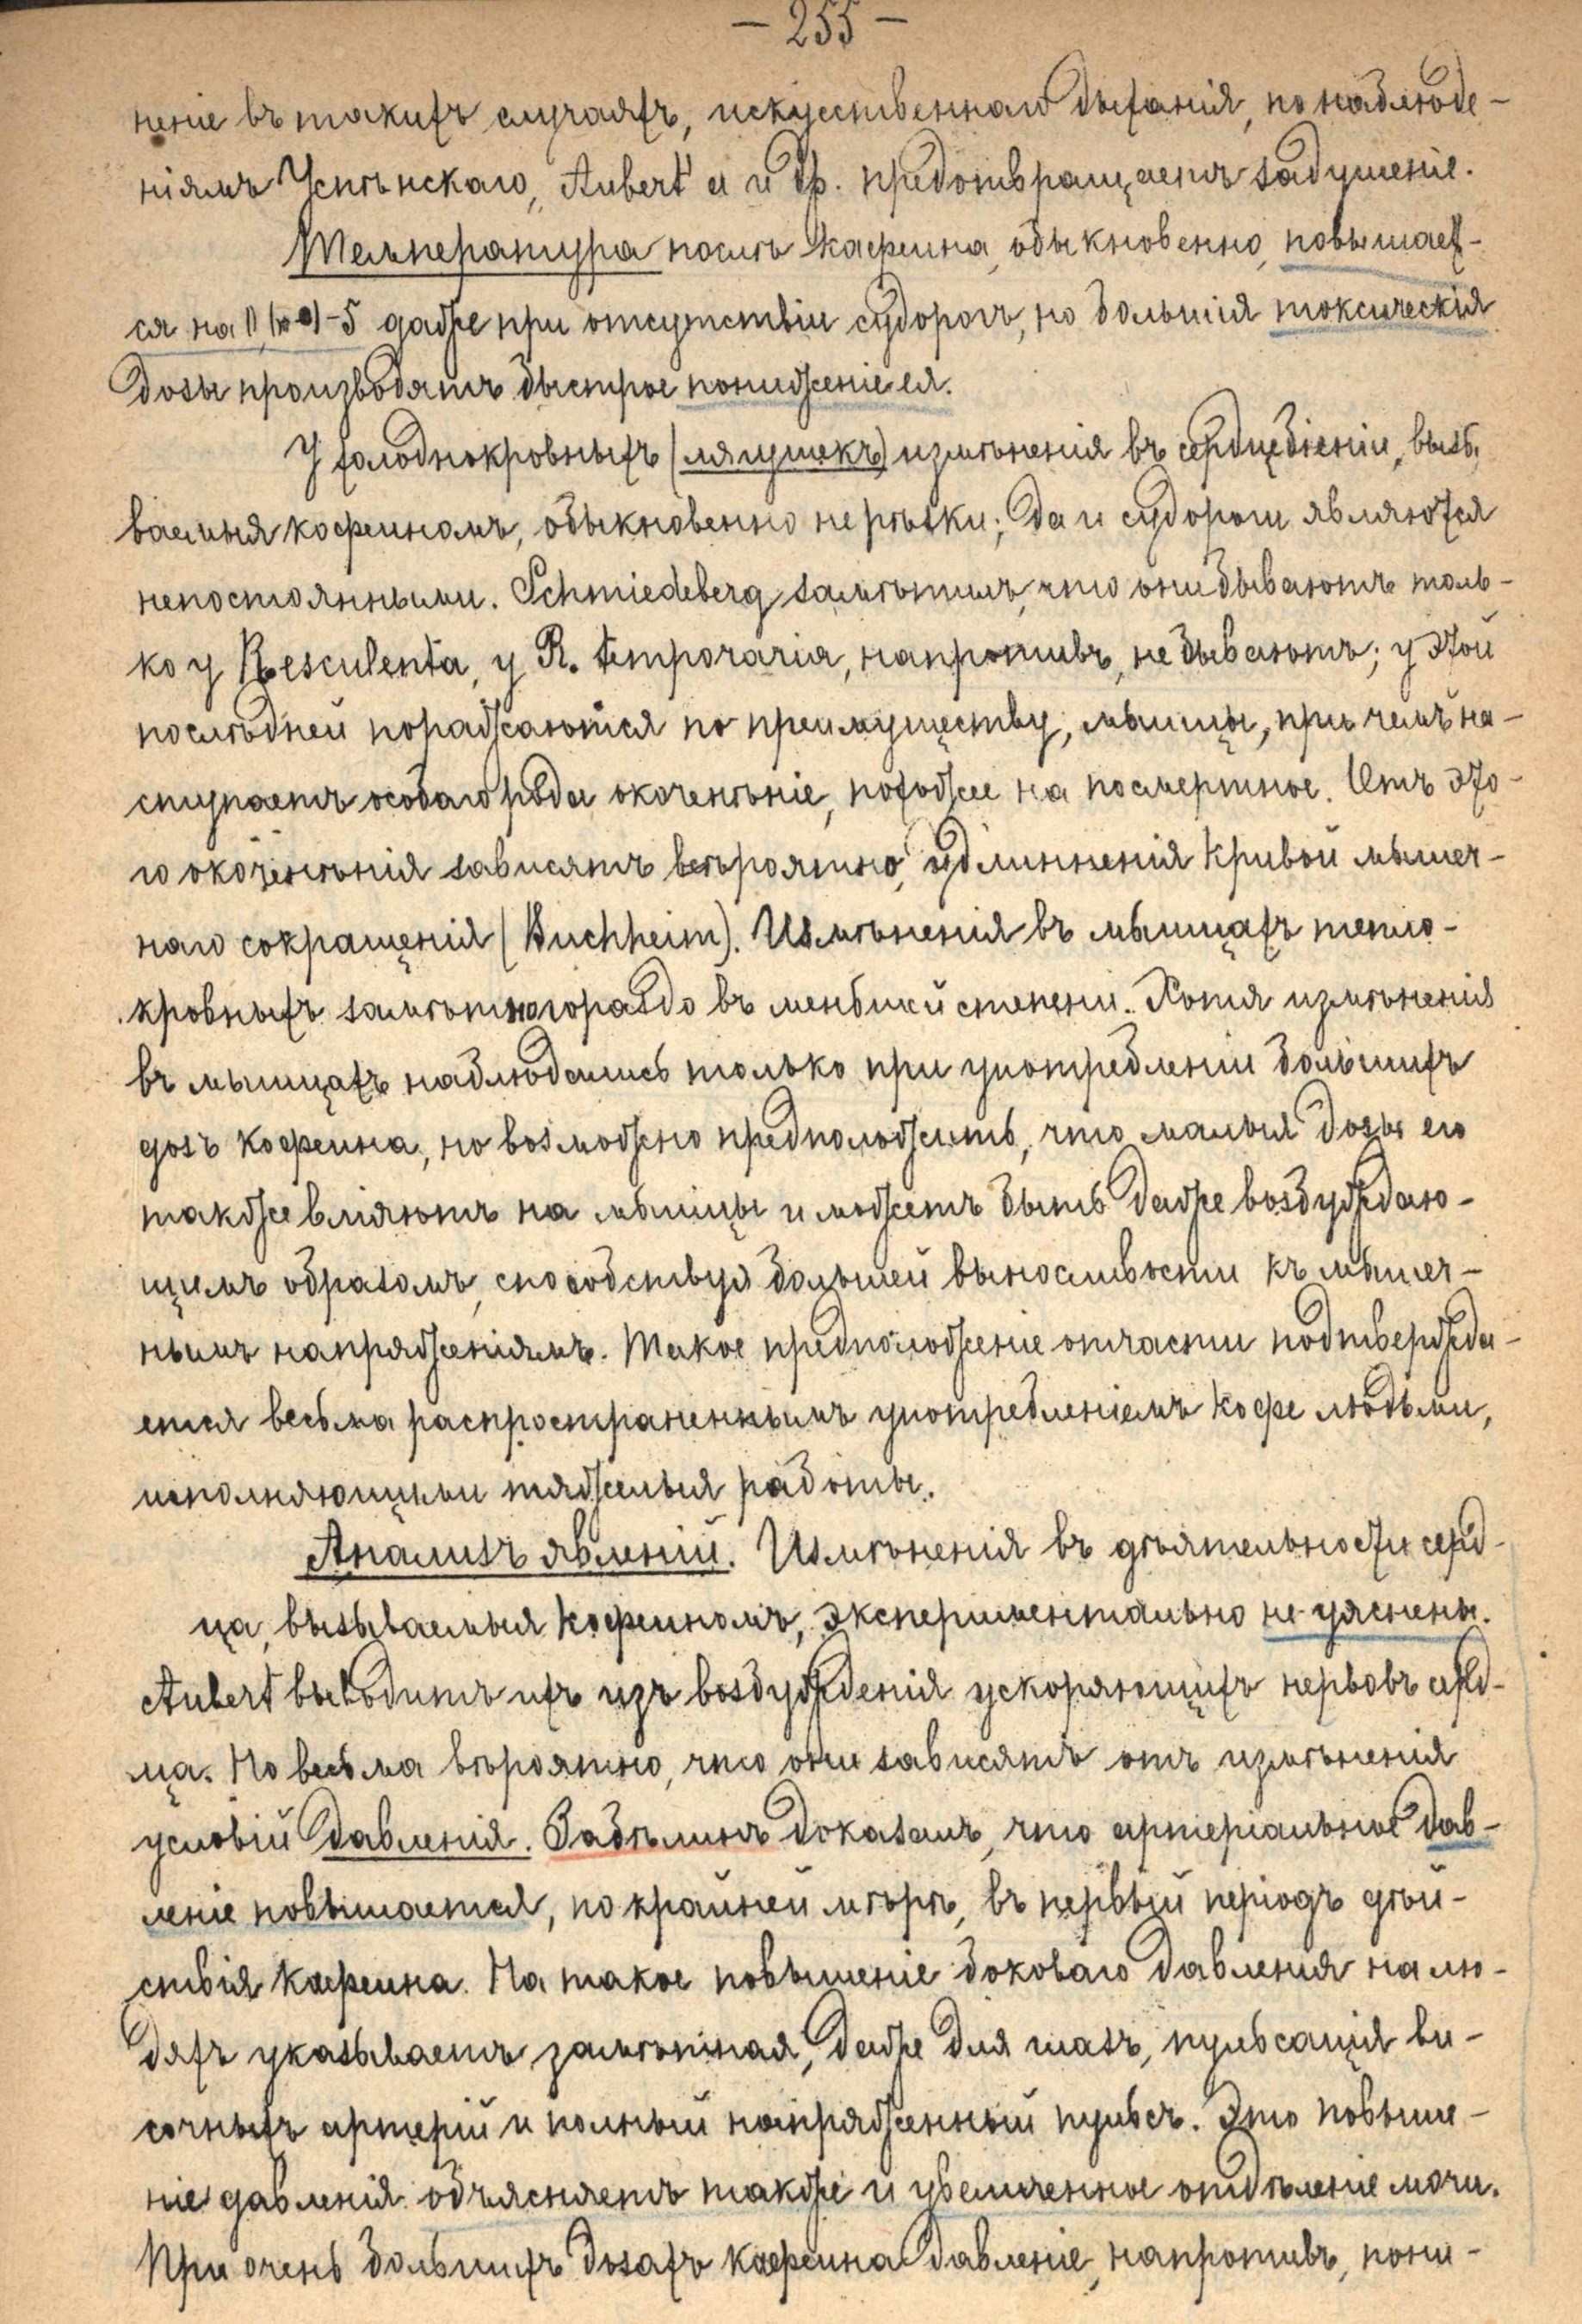 — 255 —
неніе въ такихъ случаяхъ, искуственнаго дыханія, по наблюде-
ніямъ Успѣнскаго, Aubert'a и др. предотвращаетъ задушеніе.
Температура послѣ кафеина, обыкновенно, повышает-
ся на 5 даже при отсутствіи судорогъ, но большія токсическія
дозы производятъ быстрое пониженіе ея.
У холоднокровныхъ (лягушекъ) измѣненія въ сердцебіеніи, вызы
ваемыя кофеиномъ, обыкновенно нерѣзки; да и судороги являются
непостоянными. Schmiedeberg замѣтилъ, что они бываютъ толь-
ко у R. esculenta, у R. temporaria, напротивъ, не бываютъ; у этой
послѣдней поражаются по преимуществу, мышцы, при чемъ на-
ступаетъ особаго рода окоченѣніе, похожее на посмертное. Отъ это-
го окоченѣнія зависятъ вѣроятно, удлинненія кривой мышеч-
наго сокращенія (Buchheim). Измѣненія въ мышцахъ тепло-
кровныхъ замѣтно гораздо въ меньшей степени. Хотя измѣненія
въ мышцахъ наблюдались только при употребленіи большихъ
дозъ кофеина, но возможно предположить, что малыя дозы его
также вліяютъ на мышцы и можетъ быть даже возбуждаю-
щимъ образомъ, способствуя большей выносливости къ мышеч-
нымъ напряженіямъ. Такое предположеніе отчасти подтвержда-
ется весьма распространеннымъ употребленіемъ кофе людьми,
исполняющими тяжелыя работы.
Анализъ явленій. Измѣненія въ дѣятельности серд-
ца, вызываемыя кофеиномъ, экспериментально не уяснены.
Aubert выводитъ ихъ изъ возбужденія ускоряющихъ нервовъ серд-
ца. Но весьма вѣроятно, что они зависятъ отъ измѣненія
условій давленія. Забѣлинъ доказалъ, что артеріальное дав-
леніе повышается, по крайней мѣрѣ, въ первый періодъ дѣй-
ствія кафеина. На такое повышеніе боковаго давленія на лю-
дяхъ указываетъ замѣтная, даже для глазъ, пульсація ви-
сочныхъ артерій и полный напряженный пульсъ. Это повыше-
ніе давленія объясняетъ также и увеличенное отдѣленіе мочи.
При очень большихъ дозахъ кафеина давленіе, напротивъ, пони-